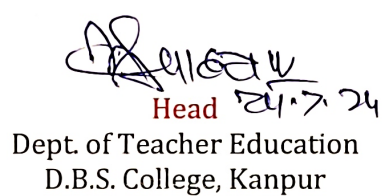 Head 24.7.24
Dept. of Teacher Education
D.B.S. College, Kanpur